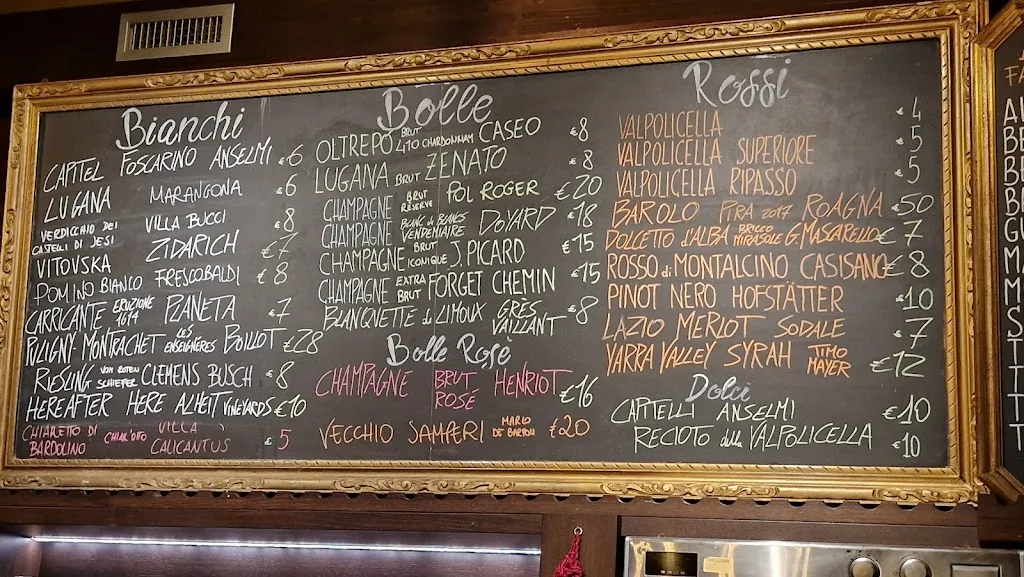 Bianchi
CAPITEL FOSCARINO ANSELMI €6
LUGANA MARANGONA €6
VERDICCHIO DEI CASTELLI DI JESI VILLA BUCCI €8
VITOVSKA ZIDARICH €7
POMINO BIANCO FRESCOBALDI €8
CARRICANTE ERUZIONE 1614 PLANETA €7
PULIGNY MONTRACHET LES ENSEIGNERES BOILLOT €28
RIESLING VON ROTEN SCHIEFER CLEMENS BUSCH €8
HEREAFTER HERE ALHEIT VINEYARDS €10
CHIARETTO DI BARDOLINO CHIAR'OTTO VILLA CALICANTUS €5
Bolle
OLTREPO BRUT 410 CHARDONNAM CASEO €8
LUGANA BRUT ZENATO €8
CHAMPAGNE BRUT RÉSERVE POL ROGER €20
CHAMPAGNE BLANC de BLANCS VENDEMIAIRE DOYARD €18
CHAMPAGNE BRUT ICONIQUE J. PICARD €15
CHAMPAGNE EXTRA BRUT FORGET CHEMIN €15
BLANQUETTE de LIMOUX GRÈS VAILLANT €8
Bolle Rosè
CHAMPAGNE BRUT ROSÉ HENRIOT €16
VECCHIO SAMPERI MARCO DE BARTOLI €20
Rossi
VALPOLICELLA €4
VALPOLICELLA SUPERIORE €5
VALPOLICELLA RIPASSO €5
BAROLO PIRA 2017 ROAGNA €50
DOLCETTO d'ALBA BRICCO MIRASOLE G. MASCARELLO €7
ROSSO di MONTALCINO CASISANO €8
PINOT NERO HOFSTÄTTER €10
LAZIO MERLOT SODALE €7
YARRA VALLEY SYRAH TIMO MAYER €12
Dolci
CAPITELLI ANSELMI €10
RECIOTO della VALPOLICELLA €10